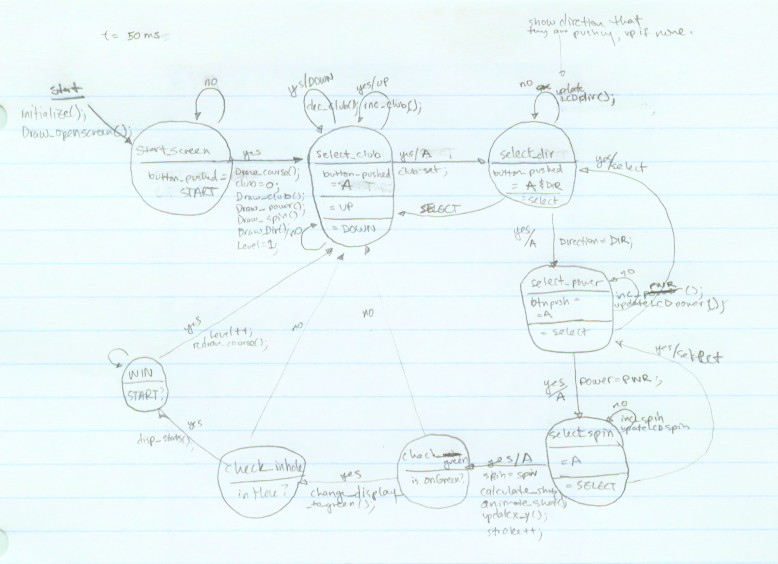 t = 50ms
show direction that
they are pushing, up if none.
Start
initialize();
Draw_openscreen();
no
start_screen
button_pushed =
START
yes
Draw_course();
club=0;
Draw_club();
Draw_power();
Draw_spin();
Draw_Dir();
Level=1;
no
yes/DOWN
dec_club();
yes/UP
inc_club();
select_club
button_pushed
= A
= UP
= DOWN
yes/A
club-set;
SELECT
no
update
LCDdir();
select_dir
button_pushed
= A & DIR
= select
yes/select
yes/
A
Direction = DIR;
select_power
btnpush =
= A
= select
no
inc_power();
updateLCDpower();
yes/select
yes/
A
power = PWR;
select_spin
= A
= SELECT
no
inc_spin
updateLCDspin
yes/A
spin = spin
calculate_shot
animate_shot();
updatex_y();
stroke++;
check_green
is onGreen?
no
yes
change_display
_to green();
check_inhole
in Hole?
no
yes
disp_stats();
WIN
START?
yes
Level++;
redraw_course();